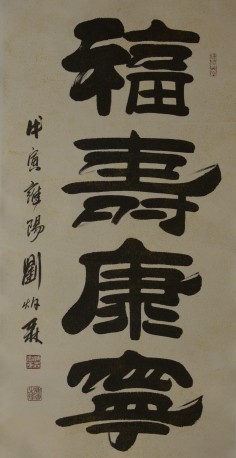 福壽康寧
戊寅雍陽劉炳森